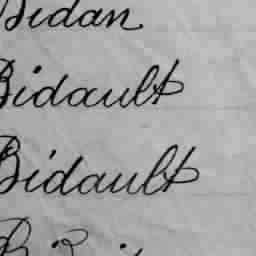 Bidan
Bidault
Bidault